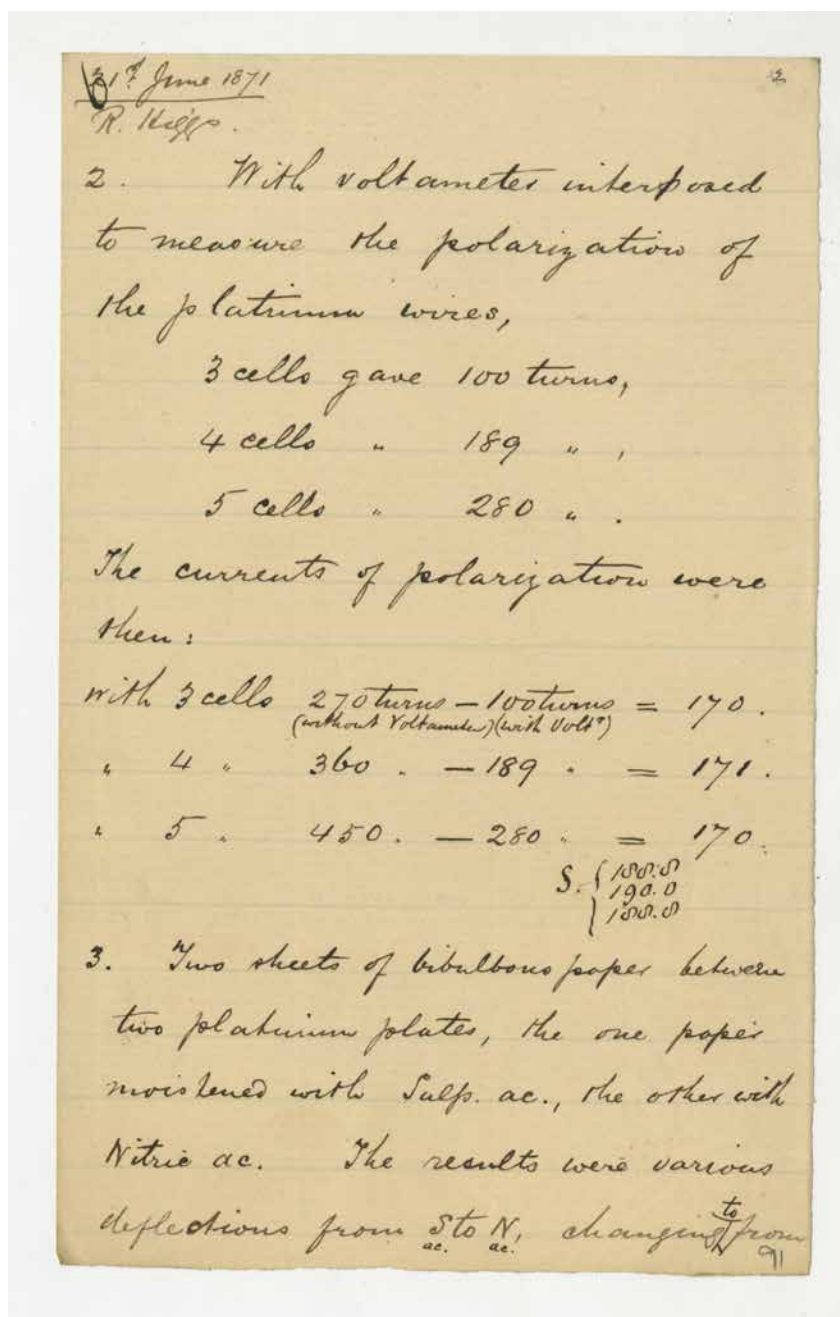 21st June 1871
2
R. Higgs.
2. With voltameter interposed
to measure the polarization of
the platinum wires,
3 cells gave 100 turns,
4 cells " 189 " ,
5 cells " 280 " .
The currents of polarization were
then:
with 3 cells 270 turns — 100 turns = 170.
(without Voltameter) (with Voltr)
" 4 " 360 " — 189 " = 171.
" 5 " 450 " — 280 " = 170.
S. { 188.8
190.0
188.8
3. Two sheets of bibulbous paper between
two platinum plates, the one paper
moistened with Sulp. ac., the other with
Nitric ac. The results were various
to
deflections from S to N, changing from
ac. ac.
91